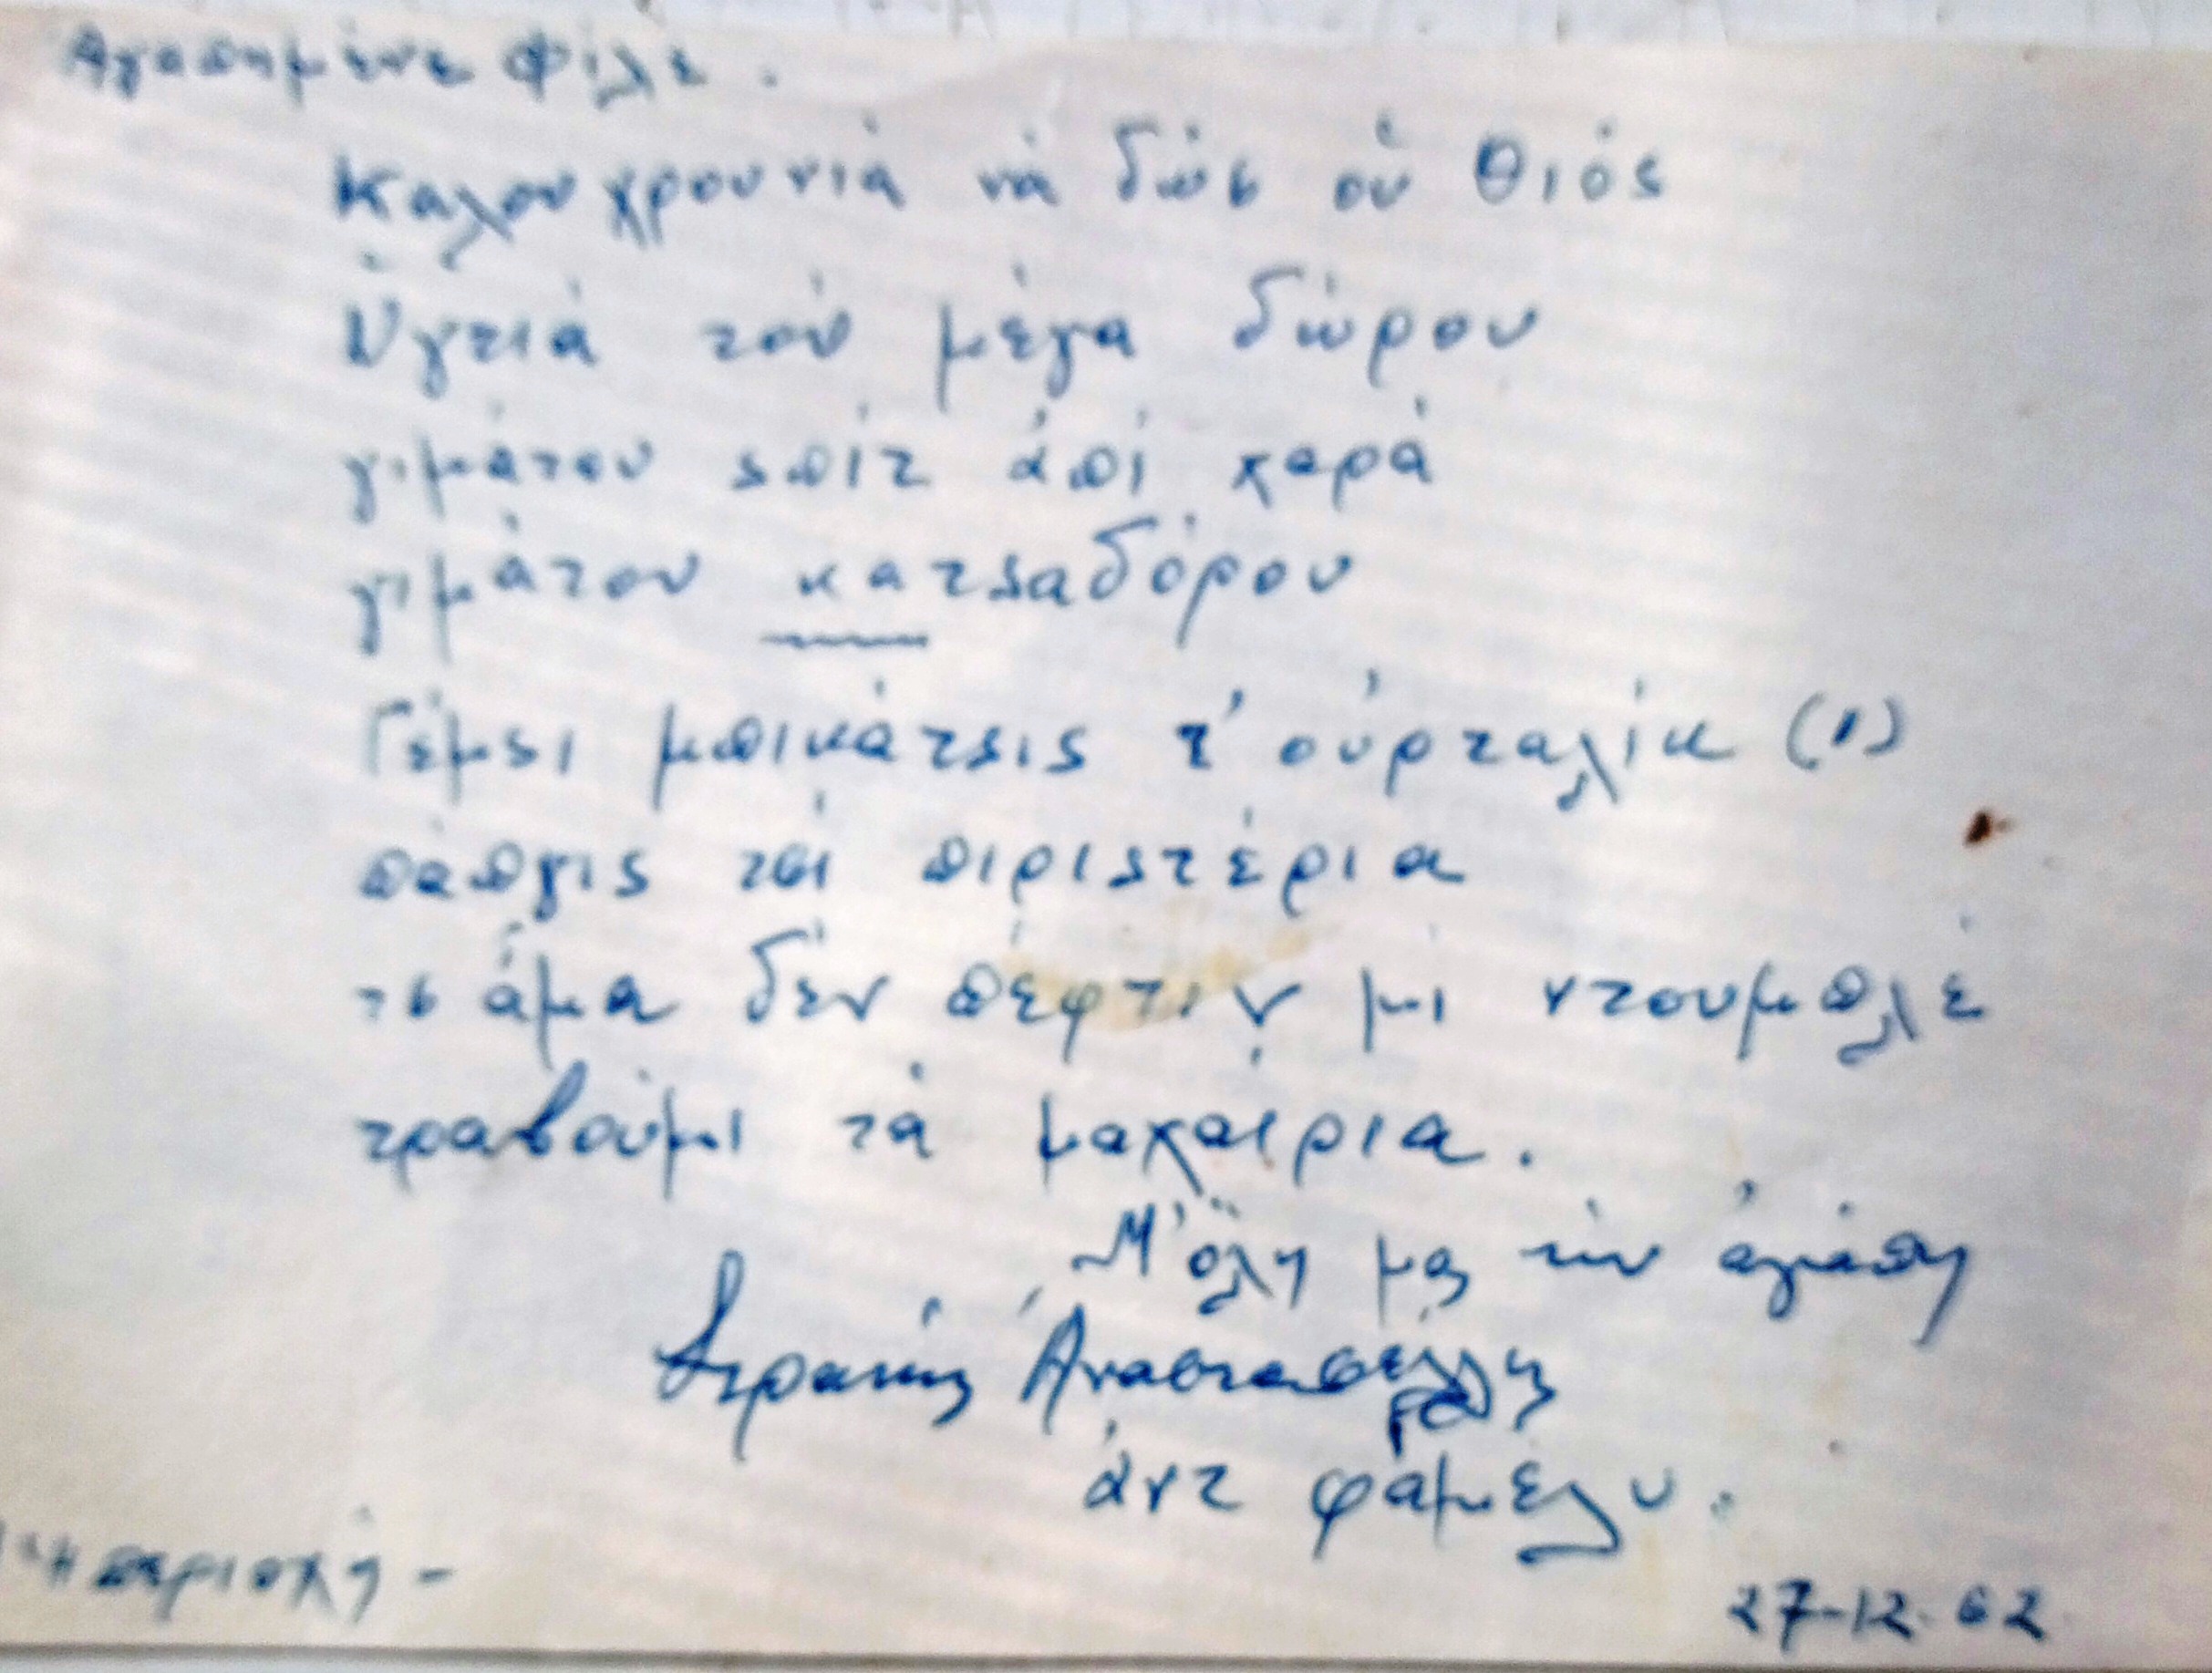 Αγαπημένε Φίλε.
Καλουχρουνιά νά δώσ ού Θιός
Ὑγειά τού μέγα δώρου
γιμάτου σπίτ ἀπί χαρά
γιμάτου κατσαδόρου
Γέμσι μπικάτσις τ' ούρταλίκ (1)
πάπγις τσί πιριστέρια
τσ ἅμα δέν πέφτιν μί ντουμπλέ
τραβούμι τά μαχαίρια.
Μ' ὅλη μας τήν ἀγάπη
Στρατής Ἀναστασέλλης
ἀντ φάμελυ.
1 Ἡ περιοχή -
27-12-62